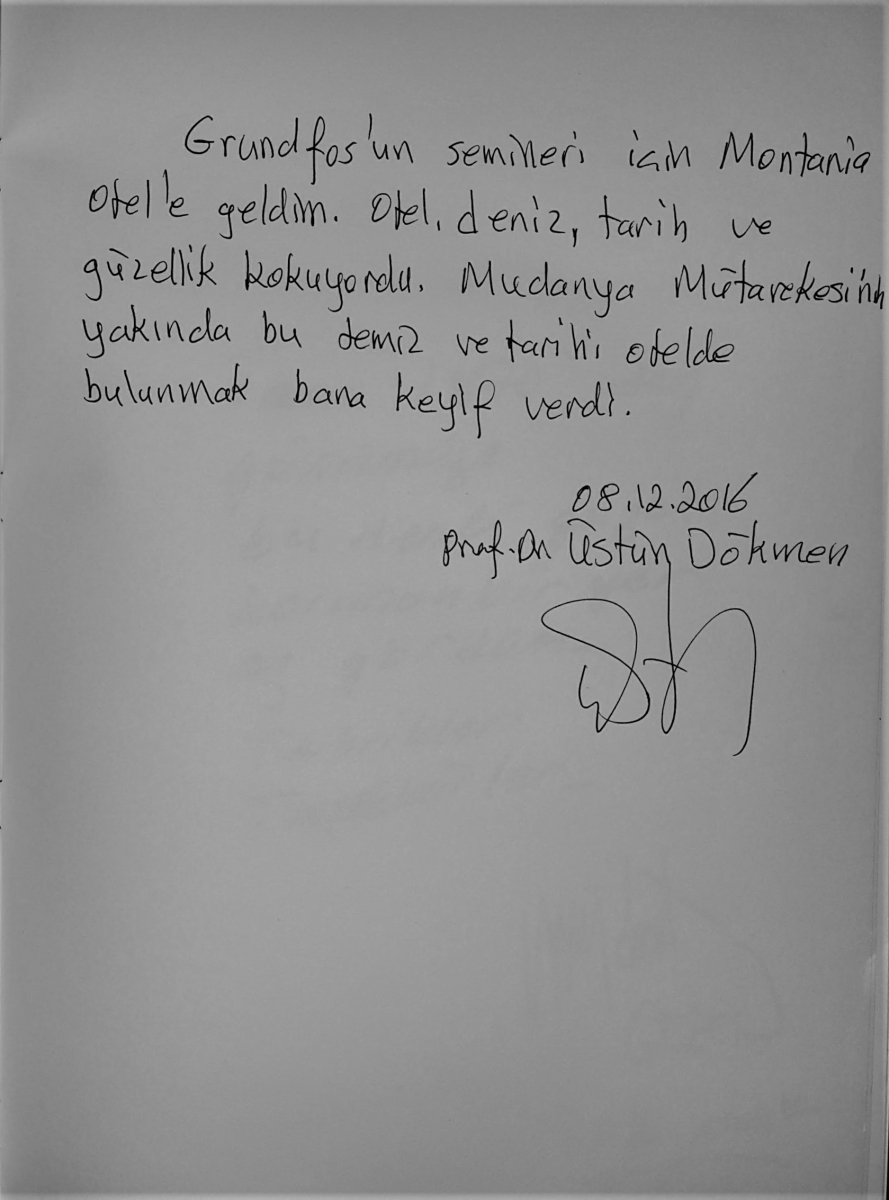 Grundfos'un semineri için Montania
Otel'e geldim. Otel, deniz, tarih ve
güzellik kokuyordu. Mudanya Mütarekesi'nin
yakında bu temiz ve tarihi otelde
bulunmak bana keyif verdi.
08.12.2016
Prof. Dr Üstün Dökmen